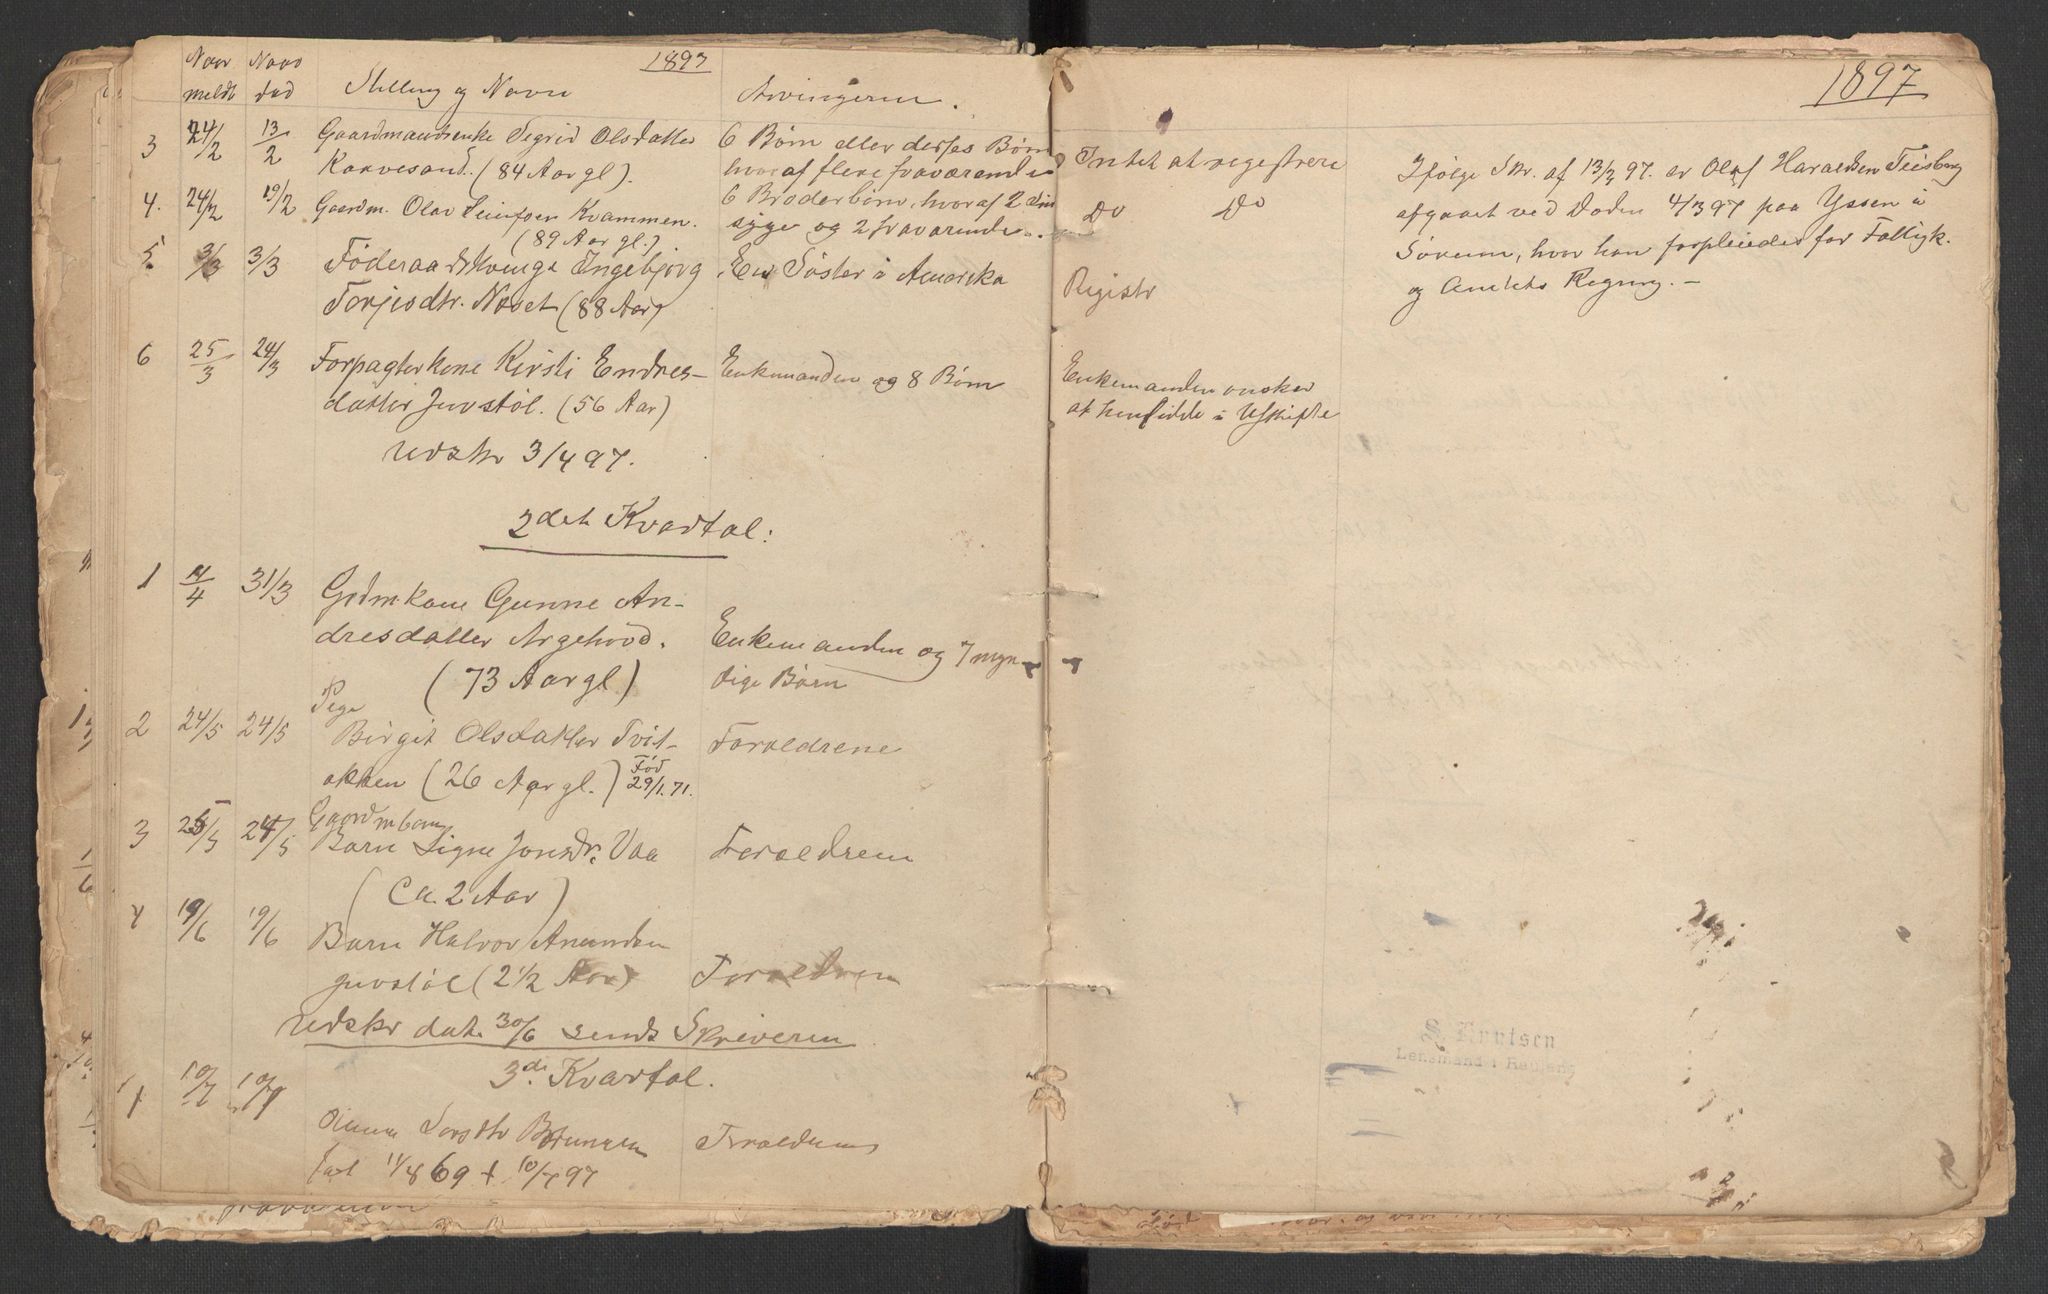 1897
Naar Naar
meldt død Stilling og Navn Arvingerne.
3 24/2 13/2 Gaardmandsenke Segrid Olsdatter 6 Børn eller derses Børn
Kaavesand. (84 Aar gl). hvoraf flere fraværende
4. 24/2 19/2 Gaardm. Olav Kvammen. 6 Broderbørn, hvoraf 2
(89 Aar gl.) syge og 2 fraværende.
5. 3/3 3/3 Føderaadskvinge Ingebjørg En Søster i Amerika
Torjesdtr. Næset (88 Aar)
6 25/3 24/3 Forpagterkone Kirsti Endres- Enkemanden og 8 Børn
datter Juvstøl. (56 Aar)
Udskr 3/4 97.
2det Kvartal:
1 /4 31/3 Grdmkone Gunne An-
dresdatter Argehovd. Enkemanden og 7 myn-
(73 Aar gl) dige Børn
Pige
2 24/5 24/5 Birgit Olsdatter Tvit- Forældrene
økken (26 Aar gl.) Fød 29/1.71.
Gaardmbarn
3 25/5 24/5 Barn Signe Jonsdr. Vaa Forældrene
(Ca. 2 Aar)
4 19/6 19/6 Barn Halvor Anundsen
Juvstøl (2 1/2 Aar) Forældren
Udskr dat. 30/6 sendt Skriveren
3de Kvartal.
1 10/7 10/7
Larsdtr Brunnen Forældrene
født 11/8 69 † 10/7 97
1897
Intet at registrere
Do Do
Registr
Enkemanden ønsker
at hensidde i Uskifte
Ifølge Skr. af 13/3 97. er Olaf Haraldsen Teisberg
afgaaet ved Døden 4/3 97 paa Yssen i
Sørum, hvor han forpleiedes for Fattigk.
og Amtets Regning. -
S. Knutsen
Lensmand i Rauland